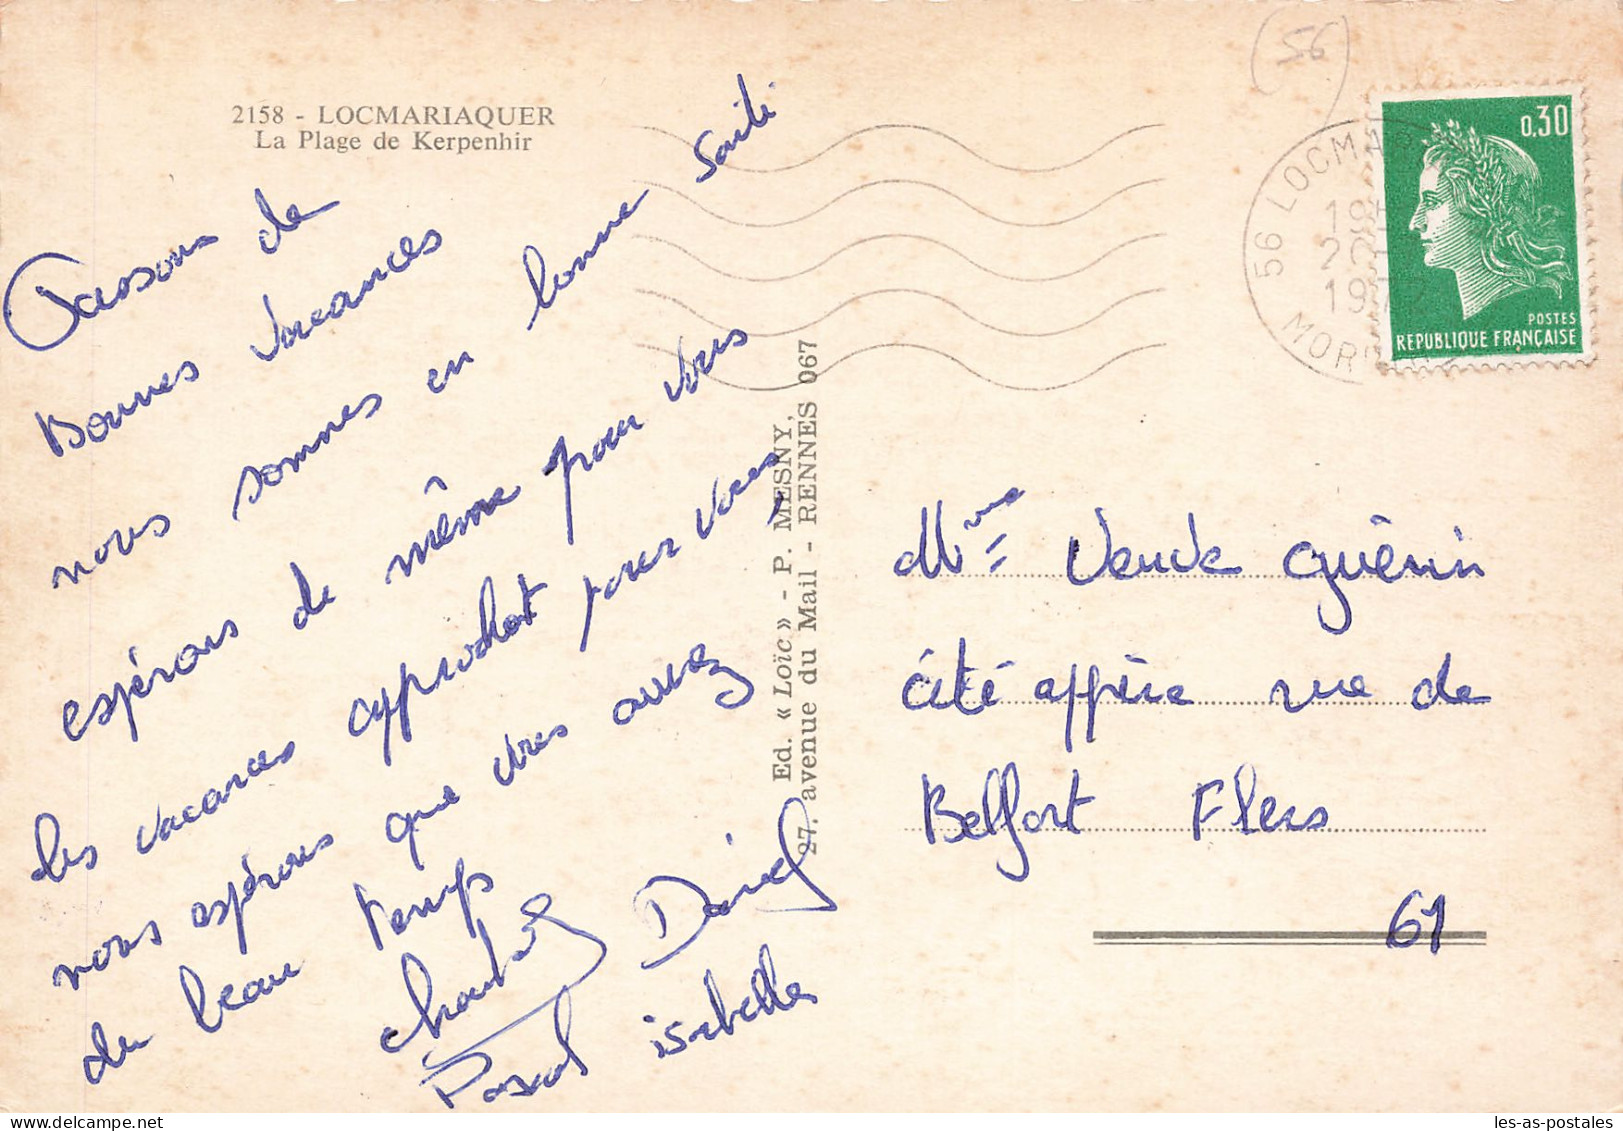 2158 - LOCMARIAQUER
La Plage de Kerpenhir
Passons de
Bonnes vacances
nous sommes en bonne santé
espérons de même pour vous
les vacances approchent pour vous,
nous espérons que vous aurez
du beau temps
David
Pascal isabelle
Ed. « Loïc » - P. MESNY,
27. avenue du Mail - RENNES 067
(56)
56 LOCMA
MOR
0,30
POSTES
REPUBLIQUE FRANÇAISE
Mme Veuve Guérin
cité affère rue de
Belfort Flers
61
les-as-postales